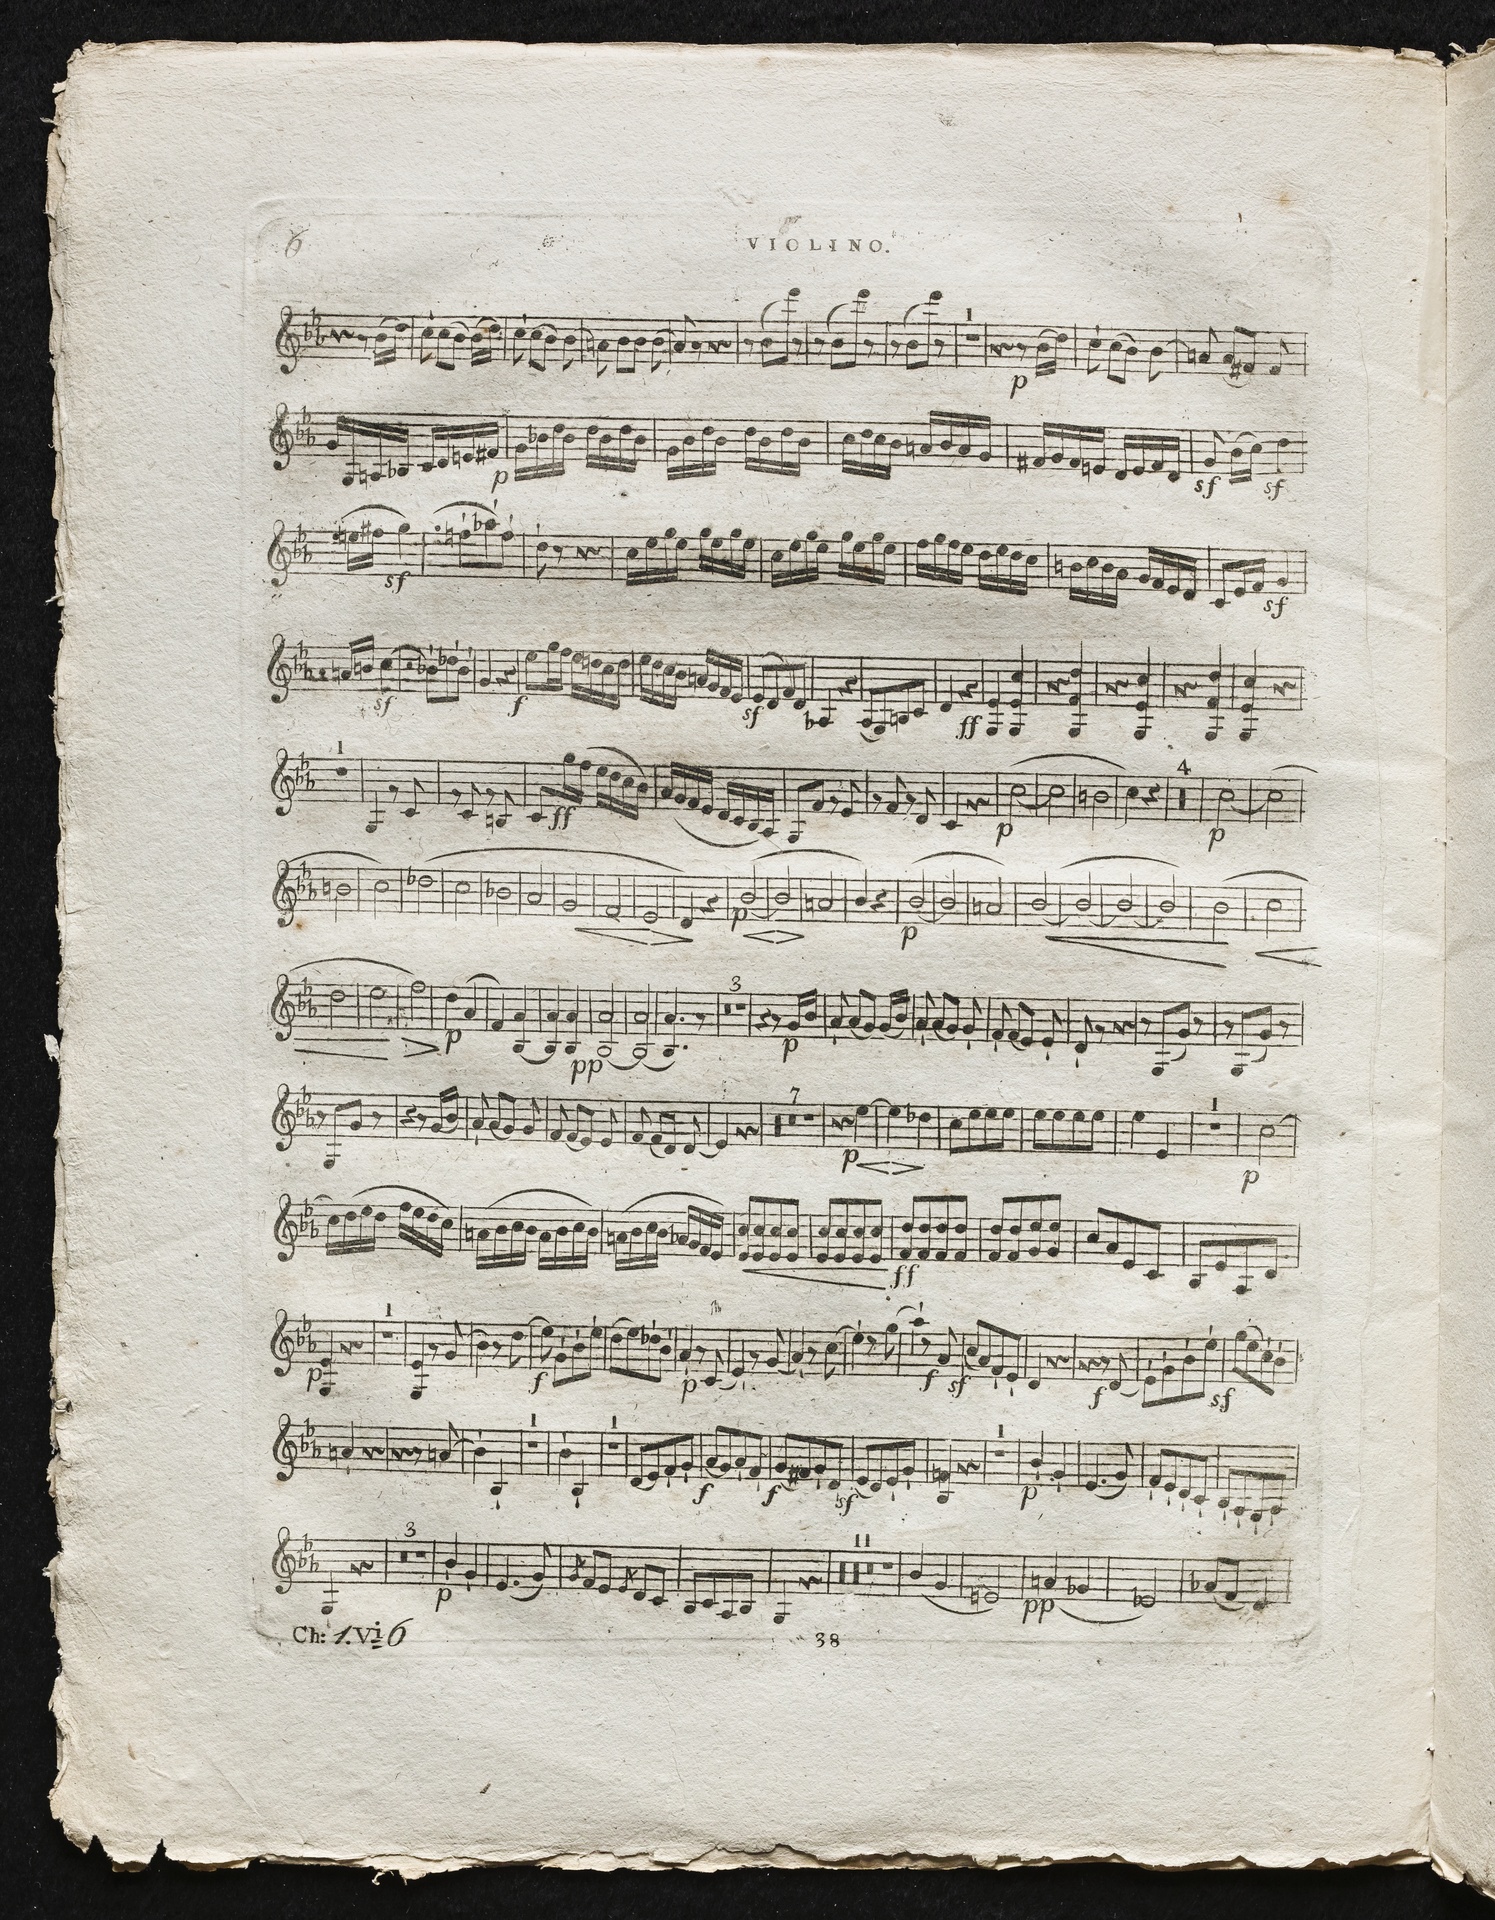 6
VIOLINO.
1
p
p
sf
sf
sf
sf
sf
f
sf
ff
1
4
ff
p
p
p
p
3
p
pp
p
7
1
p
p
ff
1
p
f
p
f
sf
f
sf
1
1
1
f
f
sf
p
3
11
p
pp
Ch: 1.Vi 6
38